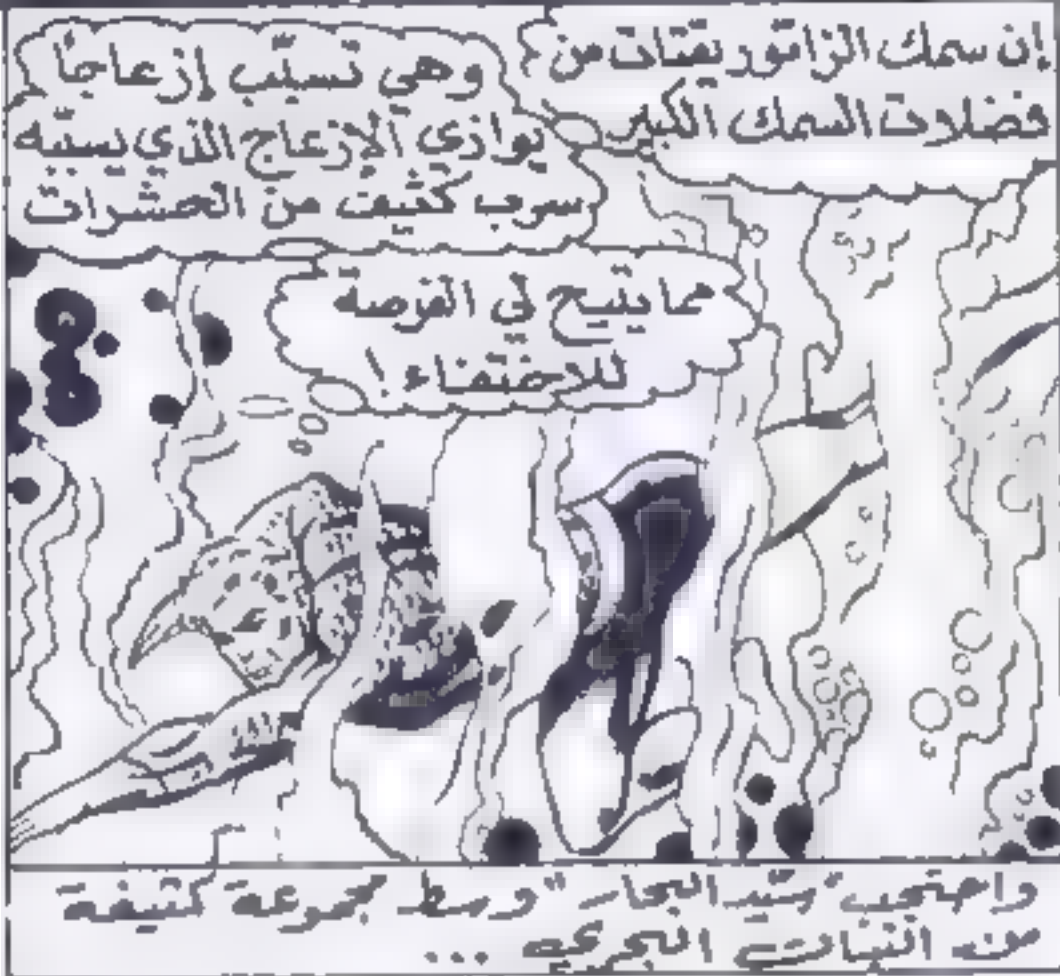 إن سمك الزاتور يقتات من
فضلات السمك الكبير
وهي تسبّب إزعاجًا
يوازي الإزعاج الذي يسببه
سرب كثيف من الحشرات
مما يتيح لي الفرصة
للاختفاء!
واحتجب "سيد البحار" وسط مجموعة كثيفة
من النبات البحري ...